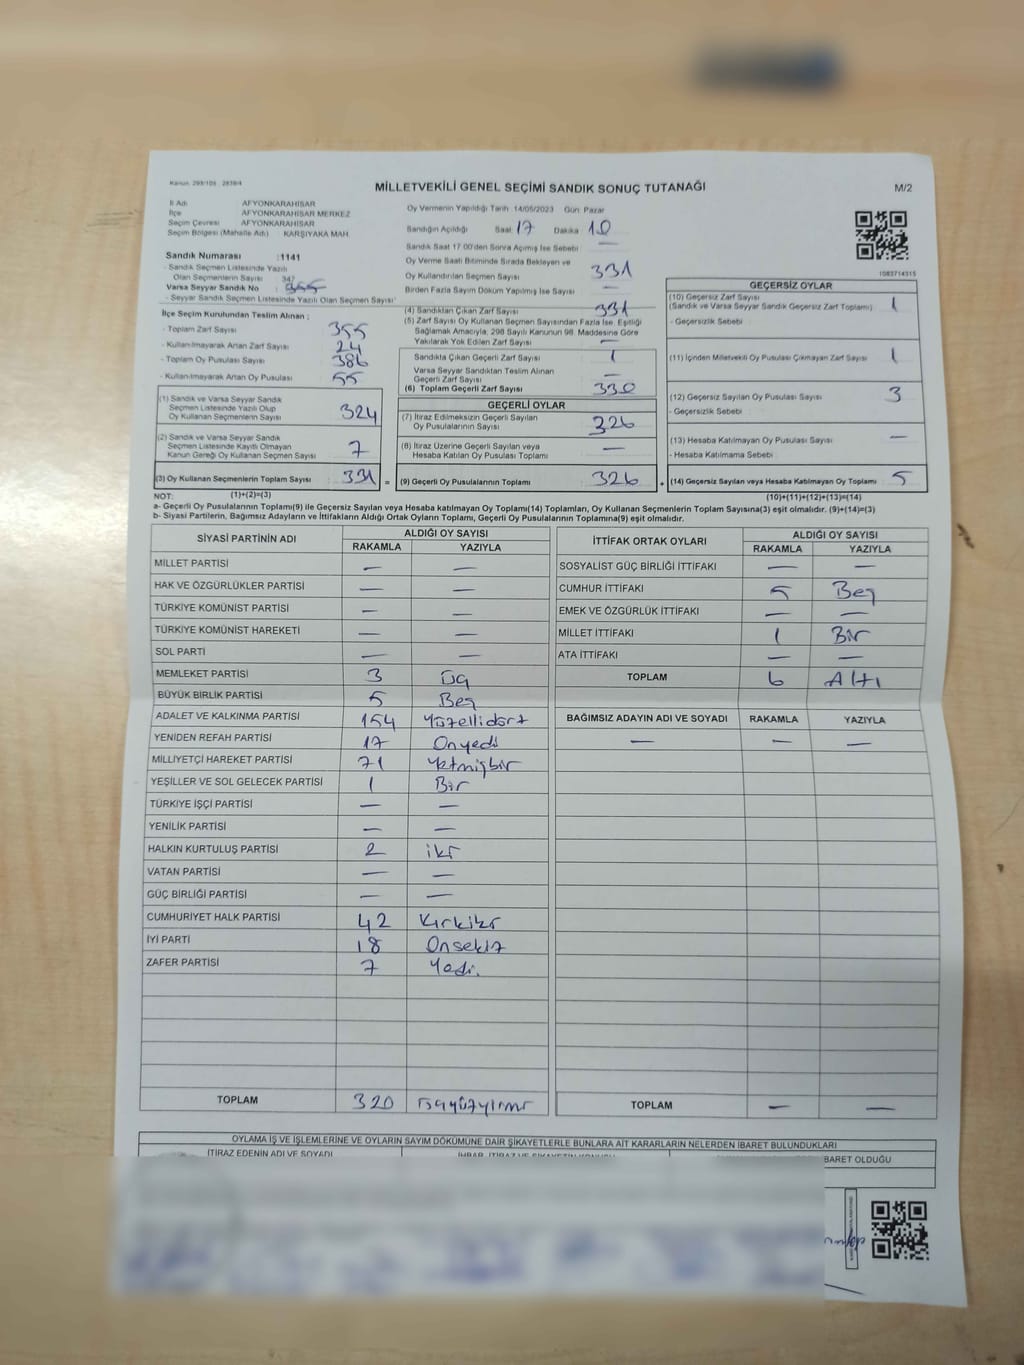 Kanun: 298/105 2839/4
MİLLETVEKİLİ GENEL SEÇİMİ SANDIK SONUÇ TUTANAĞI
M/2
İl Adı AFYONKARAHİSAR
İlçe AFYONKARAHİSAR MERKEZ
Seçim Çevresi AFYONKARAHİSAR
Seçim Bölgesi (Mahalle Adı) KARŞIYAKA MAH.
Sandık Numarası :1141
- Sandık Seçmen Listesinde Yazılı
Olan Seçmenlerin Sayısı 347
Varsa Seyyar Sandık No
- Seyyar Sandık Seçmen Listesinde Yazılı Olan Seçmen Sayısı
İlçe Seçim Kurulundan Teslim Alınan :
- Toplam Zarf Sayısı 355
- Kullanılmayarak Artan Zarf Sayısı 24
- Toplam Oy Pusulası Sayısı 386
- Kullanılmayarak Artan Oy Pusulası 55
(1) Sandık ve Varsa Seyyar Sandık
Seçmen Listesinde Yazılı Olup
Oy Kullanan Seçmenlerin Sayısı 324
(2) Sandık ve Varsa Seyyar Sandık
Seçmen Listesinde Kayıtlı Olmayan
Kanun Gereği Oy Kullanan Seçmen Sayısı 7
(3) Oy Kullanan Seçmenlerin Toplam Sayısı 331 =
Oy Vermenin Yapıldığı Tarih 14/05/2023 Gün Pazar
Sandığın Açıldığı Saat 17 Dakika 10
Sandık Saat 17.00'den Sonra Açılmış İse Sebebi —
Oy Verme Saati Bitiminde Sırada Bekleyen ve
Oy Kullandırılan Seçmen Sayısı 331
Birden Fazla Sayım Döküm Yapılmış İse Sayısı —
(4) Sandıktan Çıkan Zarf Sayısı 331
(5) Zarf Sayısı Oy Kullanan Seçmen Sayısından Fazla İse, Eşitliği
Sağlamak Amacıyla, 298 Sayılı Kanunun 98. Maddesine Göre
Yakılarak Yok Edilen Zarf Sayısı —
Sandıkta Çıkan Geçerli Zarf Sayısı 1
Varsa Seyyar Sandıktan Teslim Alınan
Geçerli Zarf Sayısı —
(6) Toplam Geçerli Zarf Sayısı 330
GEÇERLİ OYLAR
(7) İtiraz Edilmeksizin Geçerli Sayılan
Oy Pusulalarının Sayısı 326
(8) İtiraz Üzerine Geçerli Sayılan veya
Hesaba Katılan Oy Pusulası Toplamı —
(9) Geçerli Oy Pusulalarının Toplamı 326 +
1083714315
GEÇERSİZ OYLAR
(10) Geçersiz Zarf Sayısı
(Sandık ve Varsa Seyyar Sandık Geçersiz Zarf Toplamı) 1
- Geçersizlik Sebebi
(11) İçinden Milletvekili Oy Pusulası Çıkmayan Zarf Sayısı 1
(12) Geçersiz Sayılan Oy Pusulası Sayısı 3
- Geçersizlik Sebebi
(13) Hesaba Katılmayan Oy Pusulası Sayısı —
- Hesaba Katılmama Sebebi
(14) Geçersiz Sayılan veya Hesaba Katılmayan Oy Toplamı 5
NOT: (1)+(2)=(3) (10)+(11)+(12)+(13)=(14)
a- Geçerli Oy Pusulalarının Toplamı(9) ile Geçersiz Sayılan veya Hesaba katılmayan Oy Toplamı(14) Toplamları, Oy Kullanan Seçmenlerin Toplam Sayısına(3) eşit olmalıdır. (9)+(14)=(3)
b- Siyasi Partilerin, Bağımsız Adayların ve İttifakların Aldığı Ortak Oyların Toplamı, Geçerli Oy Pusulalarının Toplamına(9) eşit olmalıdır.
SİYASİ PARTİNİN ADI ALDIĞI OY SAYISI
RAKAMLA YAZIYLA
MİLLET PARTİSİ — —
HAK VE ÖZGÜRLÜKLER PARTİSİ — —
TÜRKİYE KOMÜNİST PARTİSİ — —
TÜRKİYE KOMÜNİST HAREKETİ — —
SOL PARTİ — —
MEMLEKET PARTİSİ 3 Üç
BÜYÜK BİRLİK PARTİSİ 5 Beş
ADALET VE KALKINMA PARTİSİ 154 Yüzellidört
YENİDEN REFAH PARTİSİ 17 Onyedi
MİLLİYETÇİ HAREKET PARTİSİ 71 Yetmişbir
YEŞİLLER VE SOL GELECEK PARTİSİ 1 Bir
TÜRKİYE İŞÇİ PARTİSİ — —
YENİLİK PARTİSİ — —
HALKIN KURTULUŞ PARTİSİ 2 iki
VATAN PARTİSİ — —
GÜÇ BİRLİĞİ PARTİSİ — —
CUMHURİYET HALK PARTİSİ 42 Kırkiki
İYİ PARTİ 18 Onsekiz
ZAFER PARTİSİ 7 Yedi.
TOPLAM 320 Üçyüzyirmi
İTTİFAK ORTAK OYLARI ALDIĞI OY SAYISI
RAKAMLA YAZIYLA
SOSYALİST GÜÇ BİRLİĞİ İTTİFAKI — —
CUMHUR İTTİFAKI 5 Beş
EMEK VE ÖZGÜRLÜK İTTİFAKI — —
MİLLET İTTİFAKI 1 Bir
ATA İTTİFAKI — —
TOPLAM 6 Altı
BAĞIMSIZ ADAYIN ADI VE SOYADI RAKAMLA YAZIYLA
— — —
TOPLAM — —
OYLAMA İŞ VE İŞLEMLERİNE VE OYLARIN SAYIM DÖKÜMÜNE DAİR ŞİKAYETLERLE BUNLARA AİT KARARLARIN NELERDEN İBARET BULUNDUKLARI
İTİRAZ EDENİN ADI VE SOYADI
BARET OLDUĞU